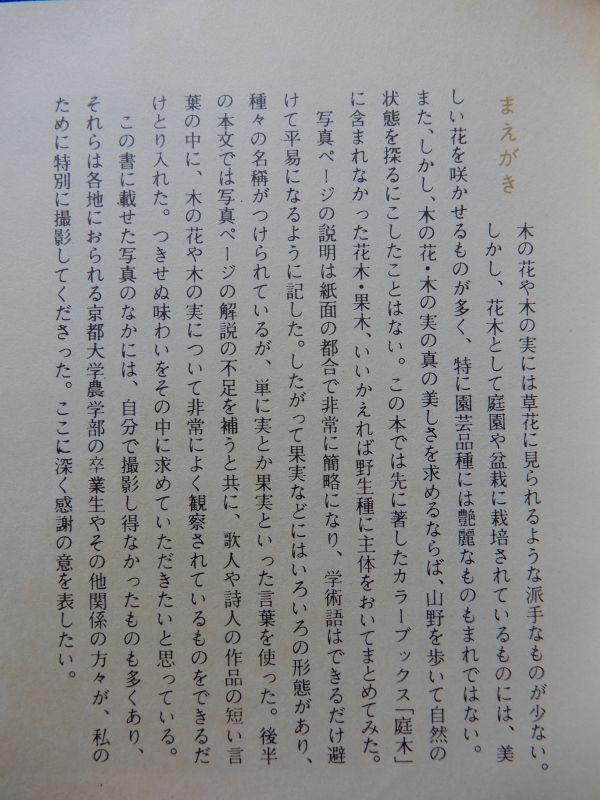 まえがき
木の花や木の実には草花に見られるような派手なものが少ない。
しかし、花木として庭園や盆栽に栽培されているものには、美
しい花を咲かせるものが多く、特に園芸品種には艶麗なものもまれではない。
また、しかし、木の花・木の実の真の美しさを求めるならば、山野を歩いて自然の
状態を探るにこしたことはない。この本では先に著したカラーブックス「庭木」
に含まれなかった花木・果木、いいかえれば野生種に主体をおいてまとめてみた。
写真ページの説明は紙面の都合で非常に簡略になり、学術語はできるだけ避
けて平易になるように記した。したがって果実などにはいろいろの形態があり、
種々の名稱がつけられているが、単に実とか果実といった言葉を使った。後半
の本文では写真ページの解説の不足を補うと共に、歌人や詩人の作品の短い言
葉の中に、木の花や木の実について非常によく観察されているものをできるだ
けとり入れた。つきせぬ味わいをその中に求めていただきたいと思っている。
この書に載せた写真のなかには、自分で撮影し得なかったものも多くあり、
それらは各地におられる京都大学農学部の卒業生やその他関係の方々が、私の
ために特別に撮影してくださった。ここに深く感謝の意を表したい。